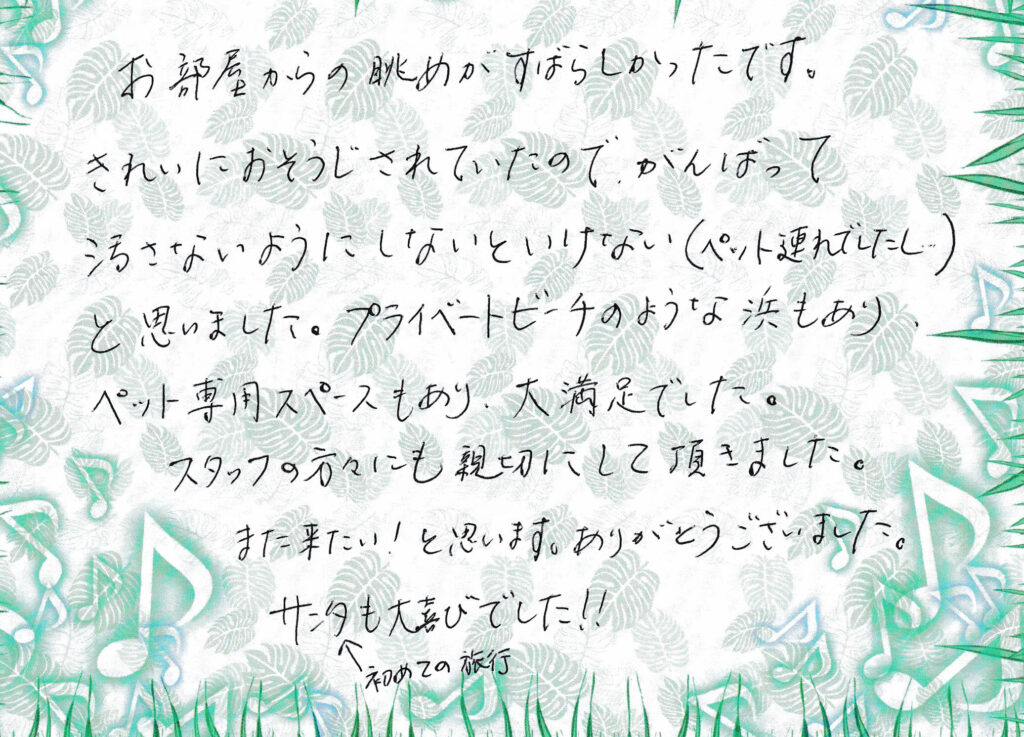 お部屋からの眺めがすばらしかったです。
きれいにおそうじされていたので、がんばって
汚さないようにしないといけない(ペット連れでしたし…)
と思いました。プライベートビーチのような浜もあり、
ペット専用スペースもあり、大満足でした。
スタッフの方々にも親切にして頂きました。
また来たい!と思います。ありがとうございました。
サンタも大喜びでした!!
初めての旅行